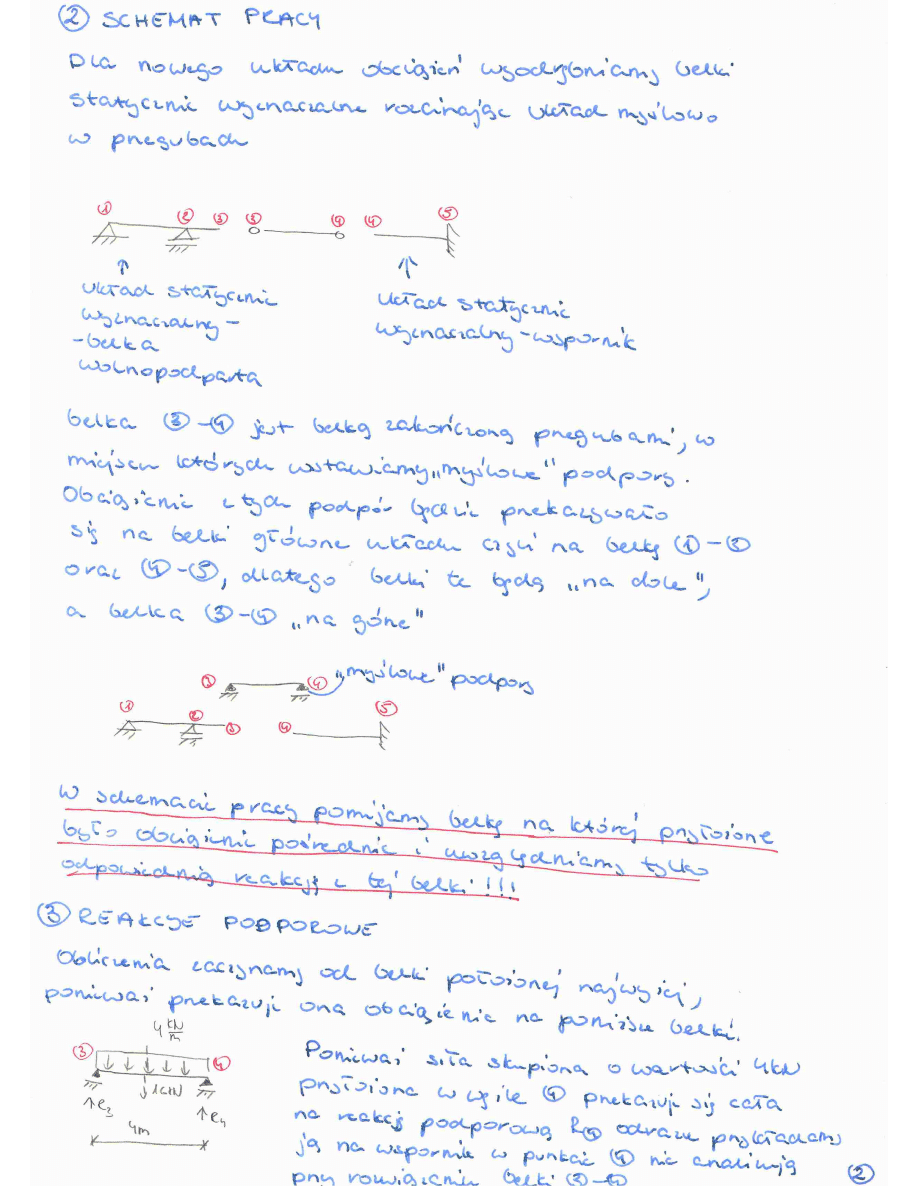 ② SCHEMAT PRACY
Dla nowego układu obciążeń wyodrębniamy belki
statycznie wyznaczalne rozcinając układ myślowo
w przegubach
① ② ③ ③ ④ ④ ⑤
układ statycznie
wyznaczalny -
- belka
wolnopodparta
układ statycznie
wyznaczalny - wspornik
belka ③-④ jest belką zakończoną przegubami, w
miejscu których wstawiamy „myślowe" podpory.
Obciążenie z tych podpór będzie przekazywało
się na belki główne układu czyli na belkę ①-③
oraz ④-⑤, dlatego belki te będą „na dole",
a belka ③-④ „na górze"
③ ④ „myślowe" podpory
① ② ③ ④ ⑤
W schemacie pracy pomijamy belkę na której przyłożone
było obciążenie pośrednie i uwzględniamy tylko
odpowiednią reakcję z tej belki!!!
③ REAKCJE PODPOROWE
Obliczenia zaczynamy od belki położonej najwyżej,
ponieważ przekazuje ona obciążenie na poniższe belki.
4 kN/m
③ ④
16kN
R₃ R₄
4m
Ponieważ siła skupiona o wartości 4kN
przyłożona w węźle ④ przekazuje się cała
na reakcję podporową R④ odrazu przykładamy
ją na wspornik w punkcie ④ nie analizując
przy rozwiązaniu belki ③-④
②